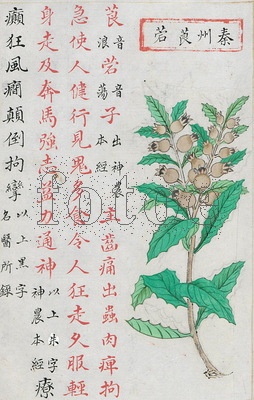 秦州莨菪
莨音浪菪音蕩子出神農本經主齒痛出蟲肉痺拘
急使人健行見鬼多食令人狂走久服輕
身走及奔馬強志益力通神以上朱字神農本經療
癲狂風癇顛倒拘攣以上黑字名醫所録